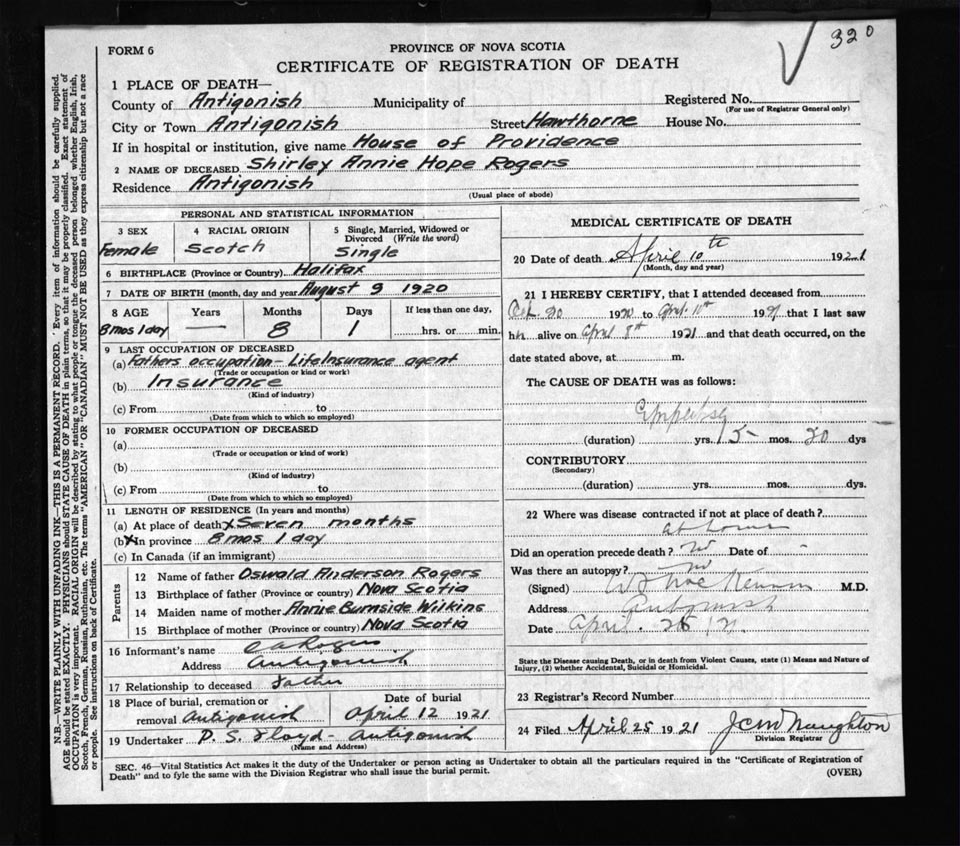 320
FORM 6
PROVINCE OF NOVA SCOTIA
CERTIFICATE OF REGISTRATION OF DEATH
1 PLACE OF DEATH—
County of Antigonish Municipality of Registered No.
(For use of Registrar General only)
City or Town Antigonish Street Hawthorne House No.
If in hospital or institution, give name House of Providence
2 NAME OF DECEASED Shirley Annie Hope Rogers
Residence Antigonish
(Usual place of abode)
PERSONAL AND STATISTICAL INFORMATION
3 SEX 4 RACIAL ORIGIN 5 Single, Married, Widowed or
Divorced (Write the word)
Female Scotch Single
6 BIRTHPLACE (Province or Country) Halifax
7 DATE OF BIRTH (month, day and year August 9 1920
8 AGE Years Months Days If less than one day,
8 mos 1 day — 8 1 hrs. or min.
9 LAST OCCUPATION OF DECEASED
(a) Fathers occupation - Life Insurance agent
(Trade or occupation or kind or work)
(b) Insurance
(Kind of industry)
(c) From to
(Date from which to which so employed)
10 FORMER OCCUPATION OF DECEASED
(a)
(Trade or occupation or kind of work)
(b)
(Kind of industry)
(c) From to
(Date from which to which so employed)
11 LENGTH OF RESIDENCE (In years and months)
(a) At place of death x Seven months
(b) x In province 8 mos 1 day
(c) In Canada (if an immigrant)
Parents
12 Name of father Oswald Anderson Rogers
13 Birthplace of father (Province or country) Nova Scotia
14 Maiden name of mother Annie Burnside Wilkins
15 Birthplace of mother (Province or country) Nova Scotia
16 Informant's name O A Rogers
Address Antigonish
17 Relationship to deceased Father
18 Place of burial, cremation or Date of burial
removal Antigonish April 12 1921
19 Undertaker P. S. Floyd - Antigonish
(Name and Address)
MEDICAL CERTIFICATE OF DEATH
20 Date of death April 10th 1921
(Month, day and year)
21 I HEREBY CERTIFY, that I attended deceased from
20 1920 to 10th 1921 that I last saw
h alive on April 8th 1921 and that death occurred, on the
date stated above, at m.
The CAUSE OF DEATH was as follows:
(duration) yrs. 5 mos. 20 dys
CONTRIBUTORY
(Secondary)
(duration) yrs. mos. dys.
22 Where was disease contracted if not at place of death?
at home
Did an operation precede death? no Date of -
Was there an autopsy? no
(Signed) M.D.
Address Antigonish
Date April. 25/21.
State the Disease causing Death, or in death from Violent Causes, state (1) Means and Nature of
Injury, (2) whether Accidental, Suicidal or Homicidal.
23 Registrar's Record Number
24 Filed April 25 1921 J C McNaughton
Division Registrar
SEC. 46—Vital Statistics Act makes it the duty of the Undertaker or person acting as Undertaker to obtain all the particulars required in the "Certificate of Registration of
Death" and to fyle the same with the Division Registrar who shall issue the burial permit.
(OVER)
N.B.—WRITE PLAINLY WITH UNFADING INK—THIS IS A PERMANENT RECORD. Every item of information should be carefully supplied.
AGE should be stated EXACTLY. PHYSICIANS should STATE CAUSE OF DEATH in plain terms, so that it may be properly classified. Exact statement of
OCCUPATION is very important. RACIAL ORIGIN will be described by stating to what people or tongue the deceased person belonged whether English, Irish,
Scotch, French, German, Russian, Ruthenian, etc. The terms "AMERICAN" OR "CANADIAN" MUST NOT BE USED as they express citizenship but not a race
or people. See instructions on back of Certificate.